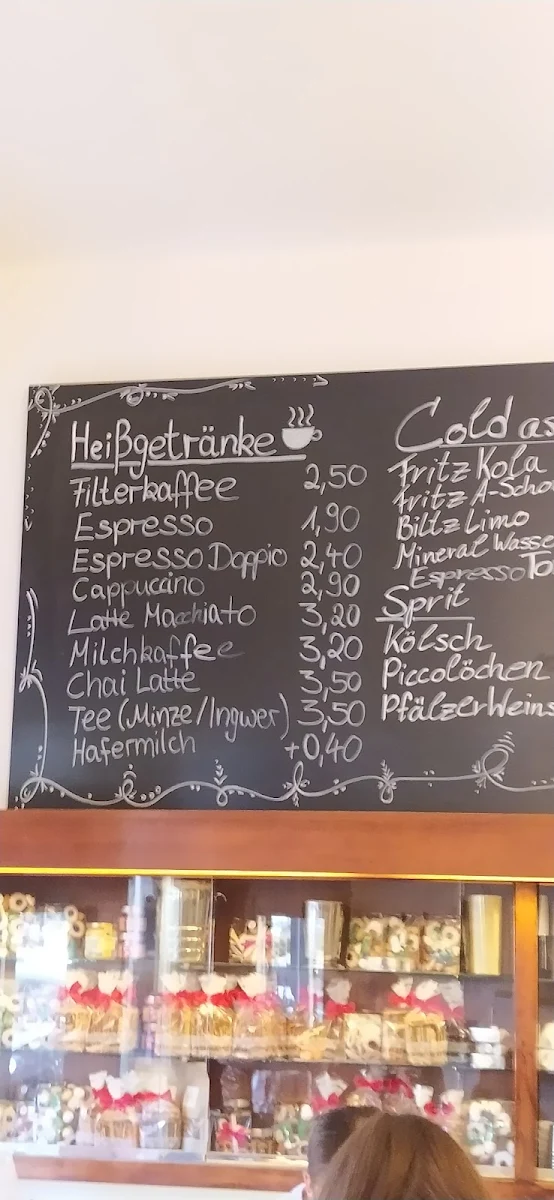 Heißgetränke
Filterkaffee 2,50
Espresso 1,90
Espresso Doppio 2,40
Cappuccino 2,90
Latte Macchiato 3,20
Milchkaffee 3,20
Chai Latte 3,50
Tee (Minze/Ingwer) 3,50
Hafermilch +0,40
Cold as
Fritz Kola
Fritz A-Scho
Biltz Limo
Mineral Wasse
Espresso To
Sprit
Kölsch
Piccolöchen
Pfälzer Weins